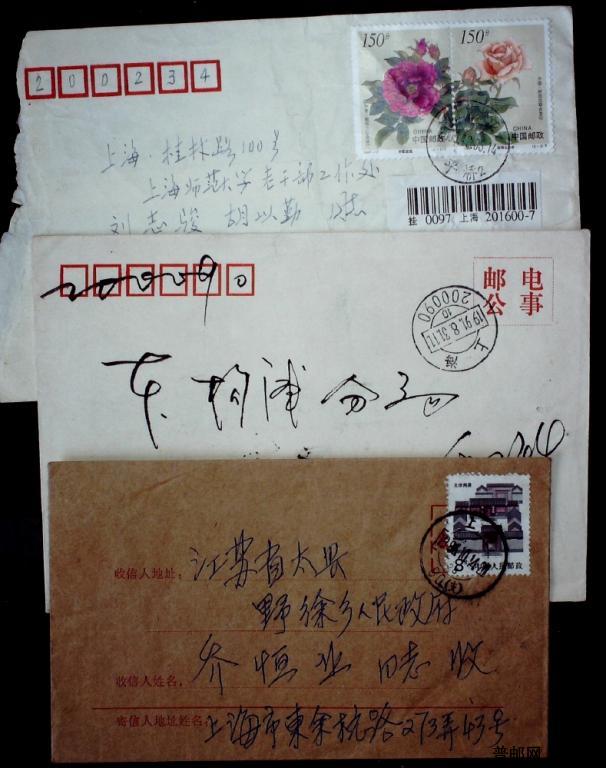 200234
150分 150分
CHINA CHINA
中国邮政 中国邮政
上海·桂林路100号
上海师范大学老干部工作处
刘志骏 胡以勤 同志
挂 0097 上海 201600-7
200090
邮电
公事
200090
1991.8.31.11
上海
东 杨浦分局
北京民居
8分
中国人民邮政
收信人地址:
江苏省太县
野徐乡人民政府
收信人姓名:
乔恒业 同志 收
寄信人地址姓名:
上海市东余杭路273弄43号
普邮网